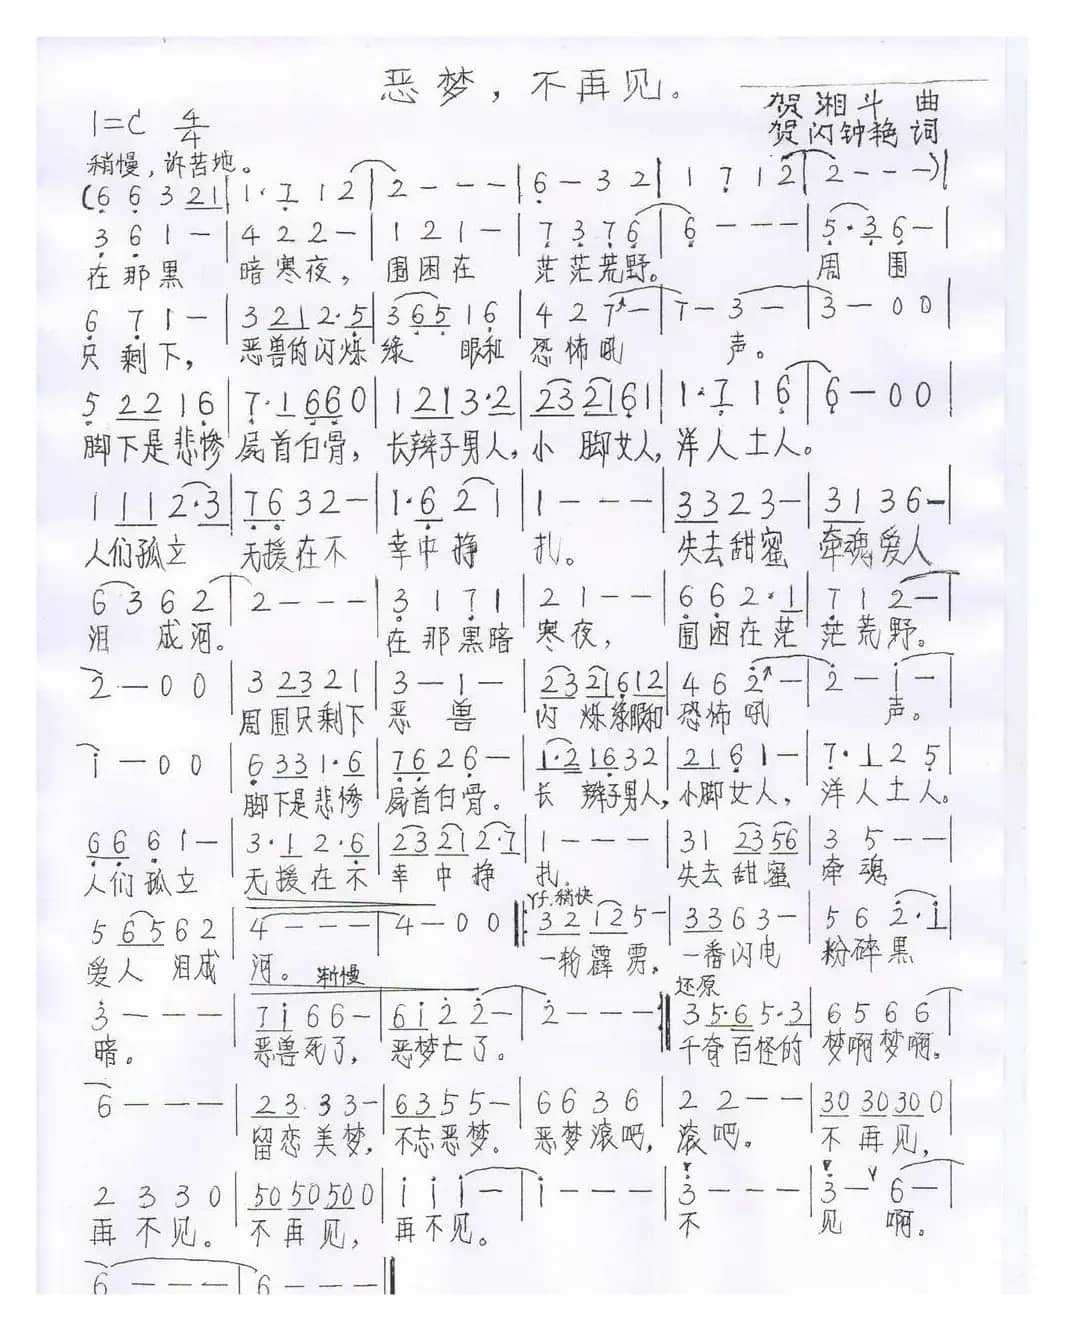 恶梦，不再见。
贺湘斗 曲
1=C 4/4
贺闪钟艳 词
稍慢，诉苦地。
(6 6 3 21 | 1·7 1 2 | 2 - - - | 6 - 3 2 | 1 7 1 2 | 2 - - - ) |
3 6 1 - | 4 2 2 - | 1 2 1 - | 7 3 7 6 | 6 - - - | 5·3 6 - |
在那黑 暗寒夜， 围困在 茫茫荒野。 周 围
6 7 1 - | 3 2 1 2·5 | 3 6 5 1 6 | 4 2 7 - | 7 - 3 - | 3 - 0 0 |
只剩下， 恶兽的闪烁 绿 眼和 恐怖吼 声。
5 2 2 1 6 | 7·1 6 6 0 | 1 2 1 3·2 | 2 3 2 1 6 1 | 1·7 1 6 | 6 - 0 0 |
脚下是悲惨 屍首白骨， 长辫子男人， 小 脚女人， 洋人土人。
1 1 1 2·3 | 7 6 3 2 - | 1·6 2 1 | 1 - - - | 3 3 2 3 - | 3 1 3 6 - |
人们孤立 无援在不 幸中挣 扎。 失去甜蜜 牵魂爱人
6 3 6 2 | 2 - - - | 3 1 7 1 | 2 1 - - | 6 6 2·1 | 7 1 2 - |
泪 成河。 在那黑暗 寒夜， 围困在茫 茫荒野。
2 - 0 0 | 3 2 3 2 1 | 3 - 1 - | 2 3 2 1 6 1 2 | 4 6 2 - | 2 - 1 - |
周围只剩下 恶 兽 闪 烁绿眼和 恐怖吼 声。
1 - 0 0 | 6 3 3 1·6 | 7 6 2 6 - | 1·2 1 6 3 2 | 2 1 6 1 - | 7·1 2 5 |
脚下是悲惨 屍首白骨。 长 辫子男人， 小脚女人， 洋人土人。
6 6 6 1 - | 3·1 2·6 | 2 3 2 1 2·7 | 1 - - - | 3 1 2 3 5 6 | 3 5 - - |
人们孤立 无援在不 幸 中 挣 扎。 失去甜蜜 牵 魂
稍快
5 6 5 6 2 | 4 - - - | 4 - 0 0 ‖: 3 2 1 2 5 - | 3 3 6 3 - | 5 6 2·1 |
爱人 泪成 河。 渐慢 一轮霹雳， 一番闪电 粉碎黑
还原
3 - - - | 7 1 6 6 - | 6 1 2 2 - | 2 - - - :‖ 3 5·6 5·3 | 6 5 6 6 |
暗。 恶兽死了， 恶梦亡了。 千奇百怪的 梦啊梦啊。
6 - - - | 2 3 3 3 - | 6 3 5 5 - | 6 6 3 6 | 2 2 - - | 30 30 30 0 |
留恋美梦， 不忘恶梦。 恶梦滚吧， 滚吧。 不再见，
2 3 3 0 | 50 50 50 0 | 1 1 1 - | 1 - - - | 3 - - - | 3 - 6 - |
再不见。 不再见， 再不见。 不 见 啊。
6 - - - | 6 - - - ‖